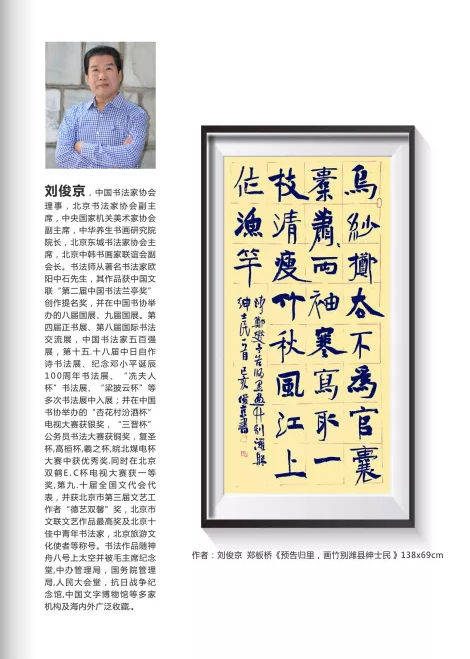 刘俊京，中国书法家协会
理事，北京书法家协会副主
席，中央国家机关美术家协会
副主席，中华养生书画研究院
院长，北京东城书法家协会主
席，北京中韩书画家联谊会副
会长。书法师从著名书法家欧
阳中石先生，其作品获中国文
联“第二届中国书法兰亭奖”
创作提名奖，并在中国书协举
办的八届国展、九届国展。第
四届正书展、第八届国际书法
交流展，中国书法家五百强
展，第十五.十八届中日自作
诗书法展、纪念邓小平诞辰
100周年书法展、“冼夫人
杯”书法展、“梁披云杯”等
多次书法展中入展；并在中国
书协举办的“杏花村汾酒杯”
电视大赛获银奖，“三晋杯”
公务员书法大赛获铜奖，复圣
杯,高恒杯,羲之杯,皖北煤电杯
大赛中获优秀奖.同时在北京
双鹤E.C杯电视大赛获一等
奖,第九.十届全国文代会代
表，并获北京市第三届文艺工
作者“德艺双馨”奖，北京市
文联文艺作品最高奖及北京十
佳中青年书法家，北京旅游文
化使者等称号。书法作品随神
舟八号上太空并被毛主席纪念
堂,中办管理局，国务院管理
局,人民大会堂，抗日战争纪
念馆,中国文字博物馆等多家
机构及海内外广泛收藏。
烏紗擲去不為官囊
橐蕭蕭兩袖寒寫取一
枝清瘦竹秋風江上
作漁竿
作者：刘俊京 郑板桥《预告归里，画竹别潍县绅士民》138x69cm